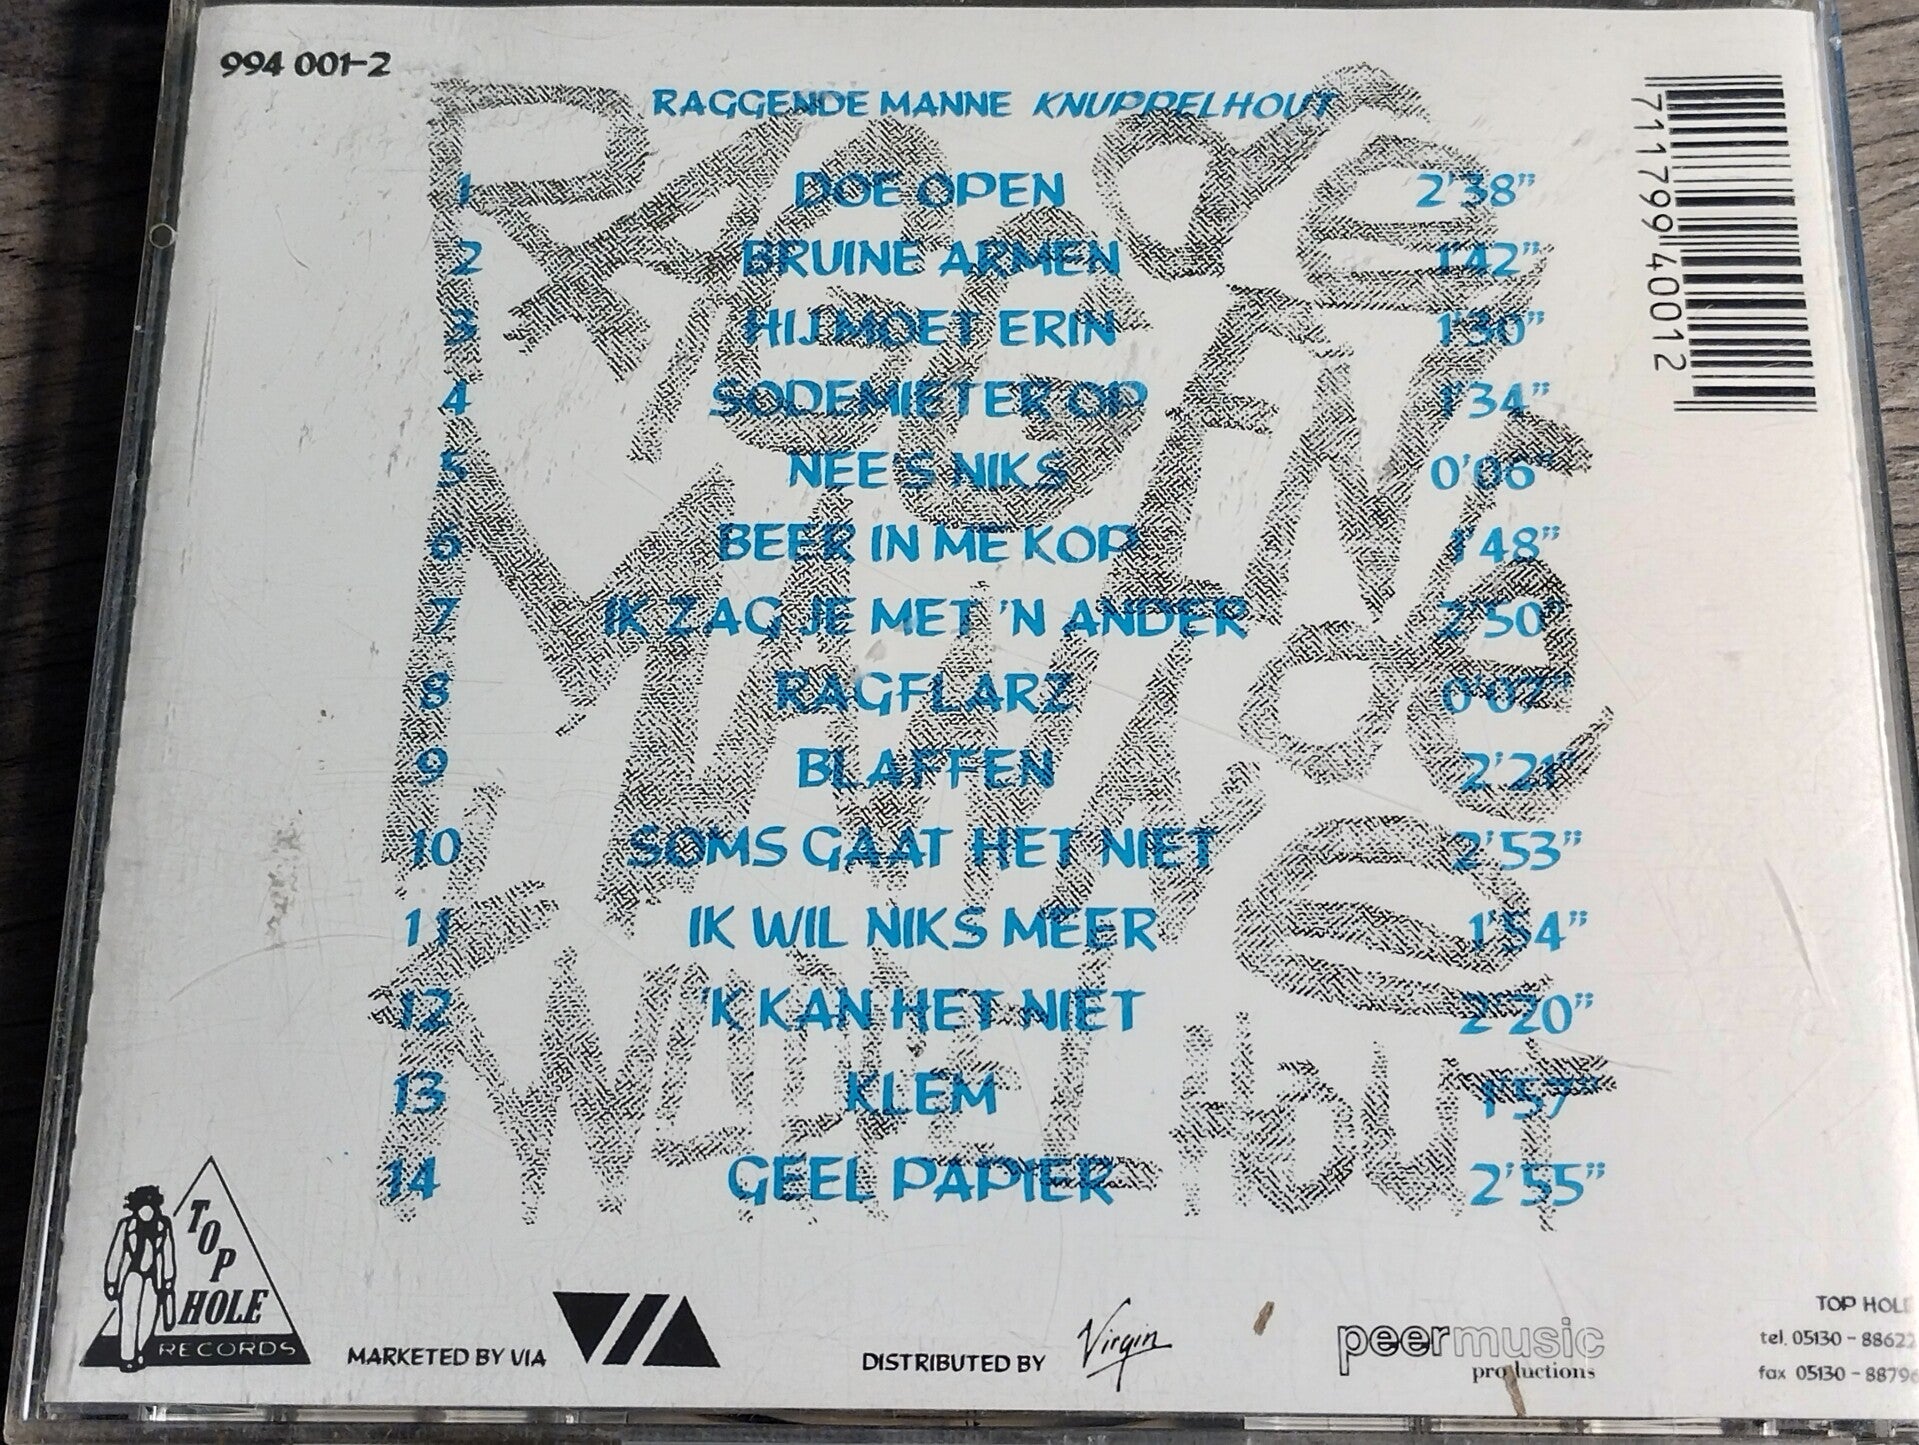 994 001-2
RAGGENDE MANNE KNUPPELHOUT
1 DOE OPEN 2'38"
2 BRUINE ARMEN 1'42"
3 HIJ MOET ERIN 1'30"
4 SODEMIETER OP 1'34"
5 NEE S NIKS 0'06"
6 BEER IN ME KOP 1'48"
7 IK ZAG JE MET 'N ANDER 2'50"
8 RAGFLARZ 0'07"
9 BLAFFEN 2'21"
10 SOMS GAAT HET NIET 2'53"
11 IK WIL NIKS MEER 1'54"
12 'K KAN HET NIET 2'20"
13 KLEM 1'57"
14 GEEL PAPIER 2'55"
RAGGENDE
MANNE
KNUPPELHOUT
7117994 0012
TOP
HOLE
RECORDS
MARKETED BY VIA VIA
DISTRIBUTED BY Virgin
peermusic
productions
TOP HOLE
tel. 05130 - 8862
fax 05130 - 8879